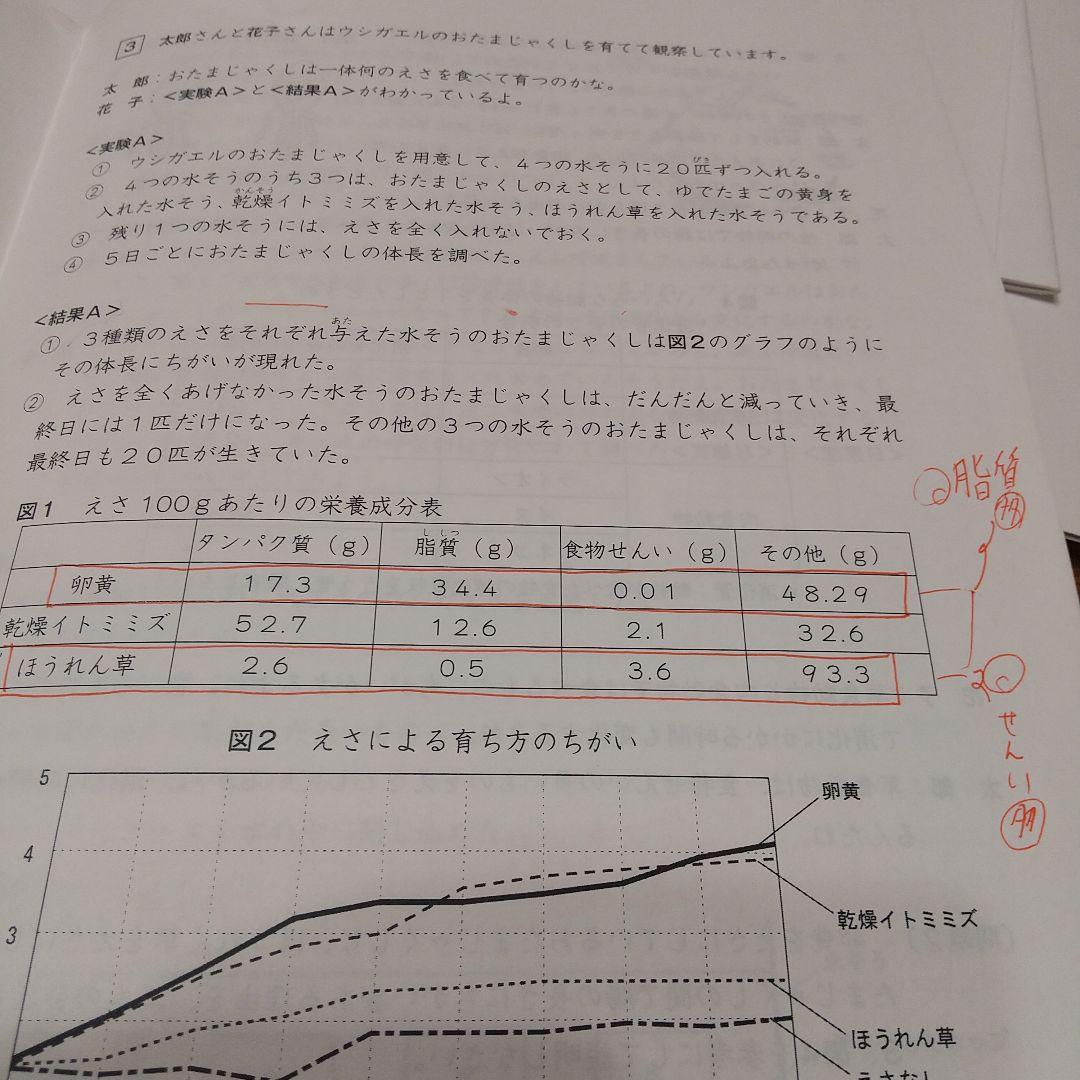 3 太郎さんと花子さんはウシガエルのおたまじゃくしを育てて観察しています。
太 郎：おたまじゃくしは一体何のえさを食べて育つのかな。
花 子：＜実験Ａ＞と＜結果Ａ＞がわかっているよ。
＜実験Ａ＞
① ウシガエルのおたまじゃくしを用意して、４つの水そうに２０匹ずつ入れる。
② ４つの水そうのうち３つは、おたまじゃくしのえさとして、ゆでたまごの黄身を
入れた水そう、乾燥イトミミズを入れた水そう、ほうれん草を入れた水そうである。
③ 残り１つの水そうには、えさを全く入れないでおく。
④ ５日ごとにおたまじゃくしの体長を調べた。
＜結果Ａ＞
① ３種類のえさをそれぞれ与えた水そうのおたまじゃくしは図２のグラフのように
その体長にちがいが現れた。
② えさを全くあげなかった水そうのおたまじゃくしは、だんだんと減っていき、最
終日には１匹だけになった。その他の３つの水そうのおたまじゃくしは、それぞれ
最終日も２０匹が生きていた。
図１ えさ 100ｇあたりの栄養成分表
タンパク質（ｇ） 脂質（ｇ） 食物せんい（ｇ） その他（ｇ）
卵黄 １７.３ ３４.４ ０.０１ ４８.２９
乾燥イトミミズ ５２.７ １２.６ ２.１ ３２.６
ほうれん草 ２.６ ０.５ ３.６ ９３.３
脂質
多
せんい
多
図２ えさによる育ち方のちがい
5
4
3
卵黄
乾燥イトミミズ
ほうれん草
えさなし